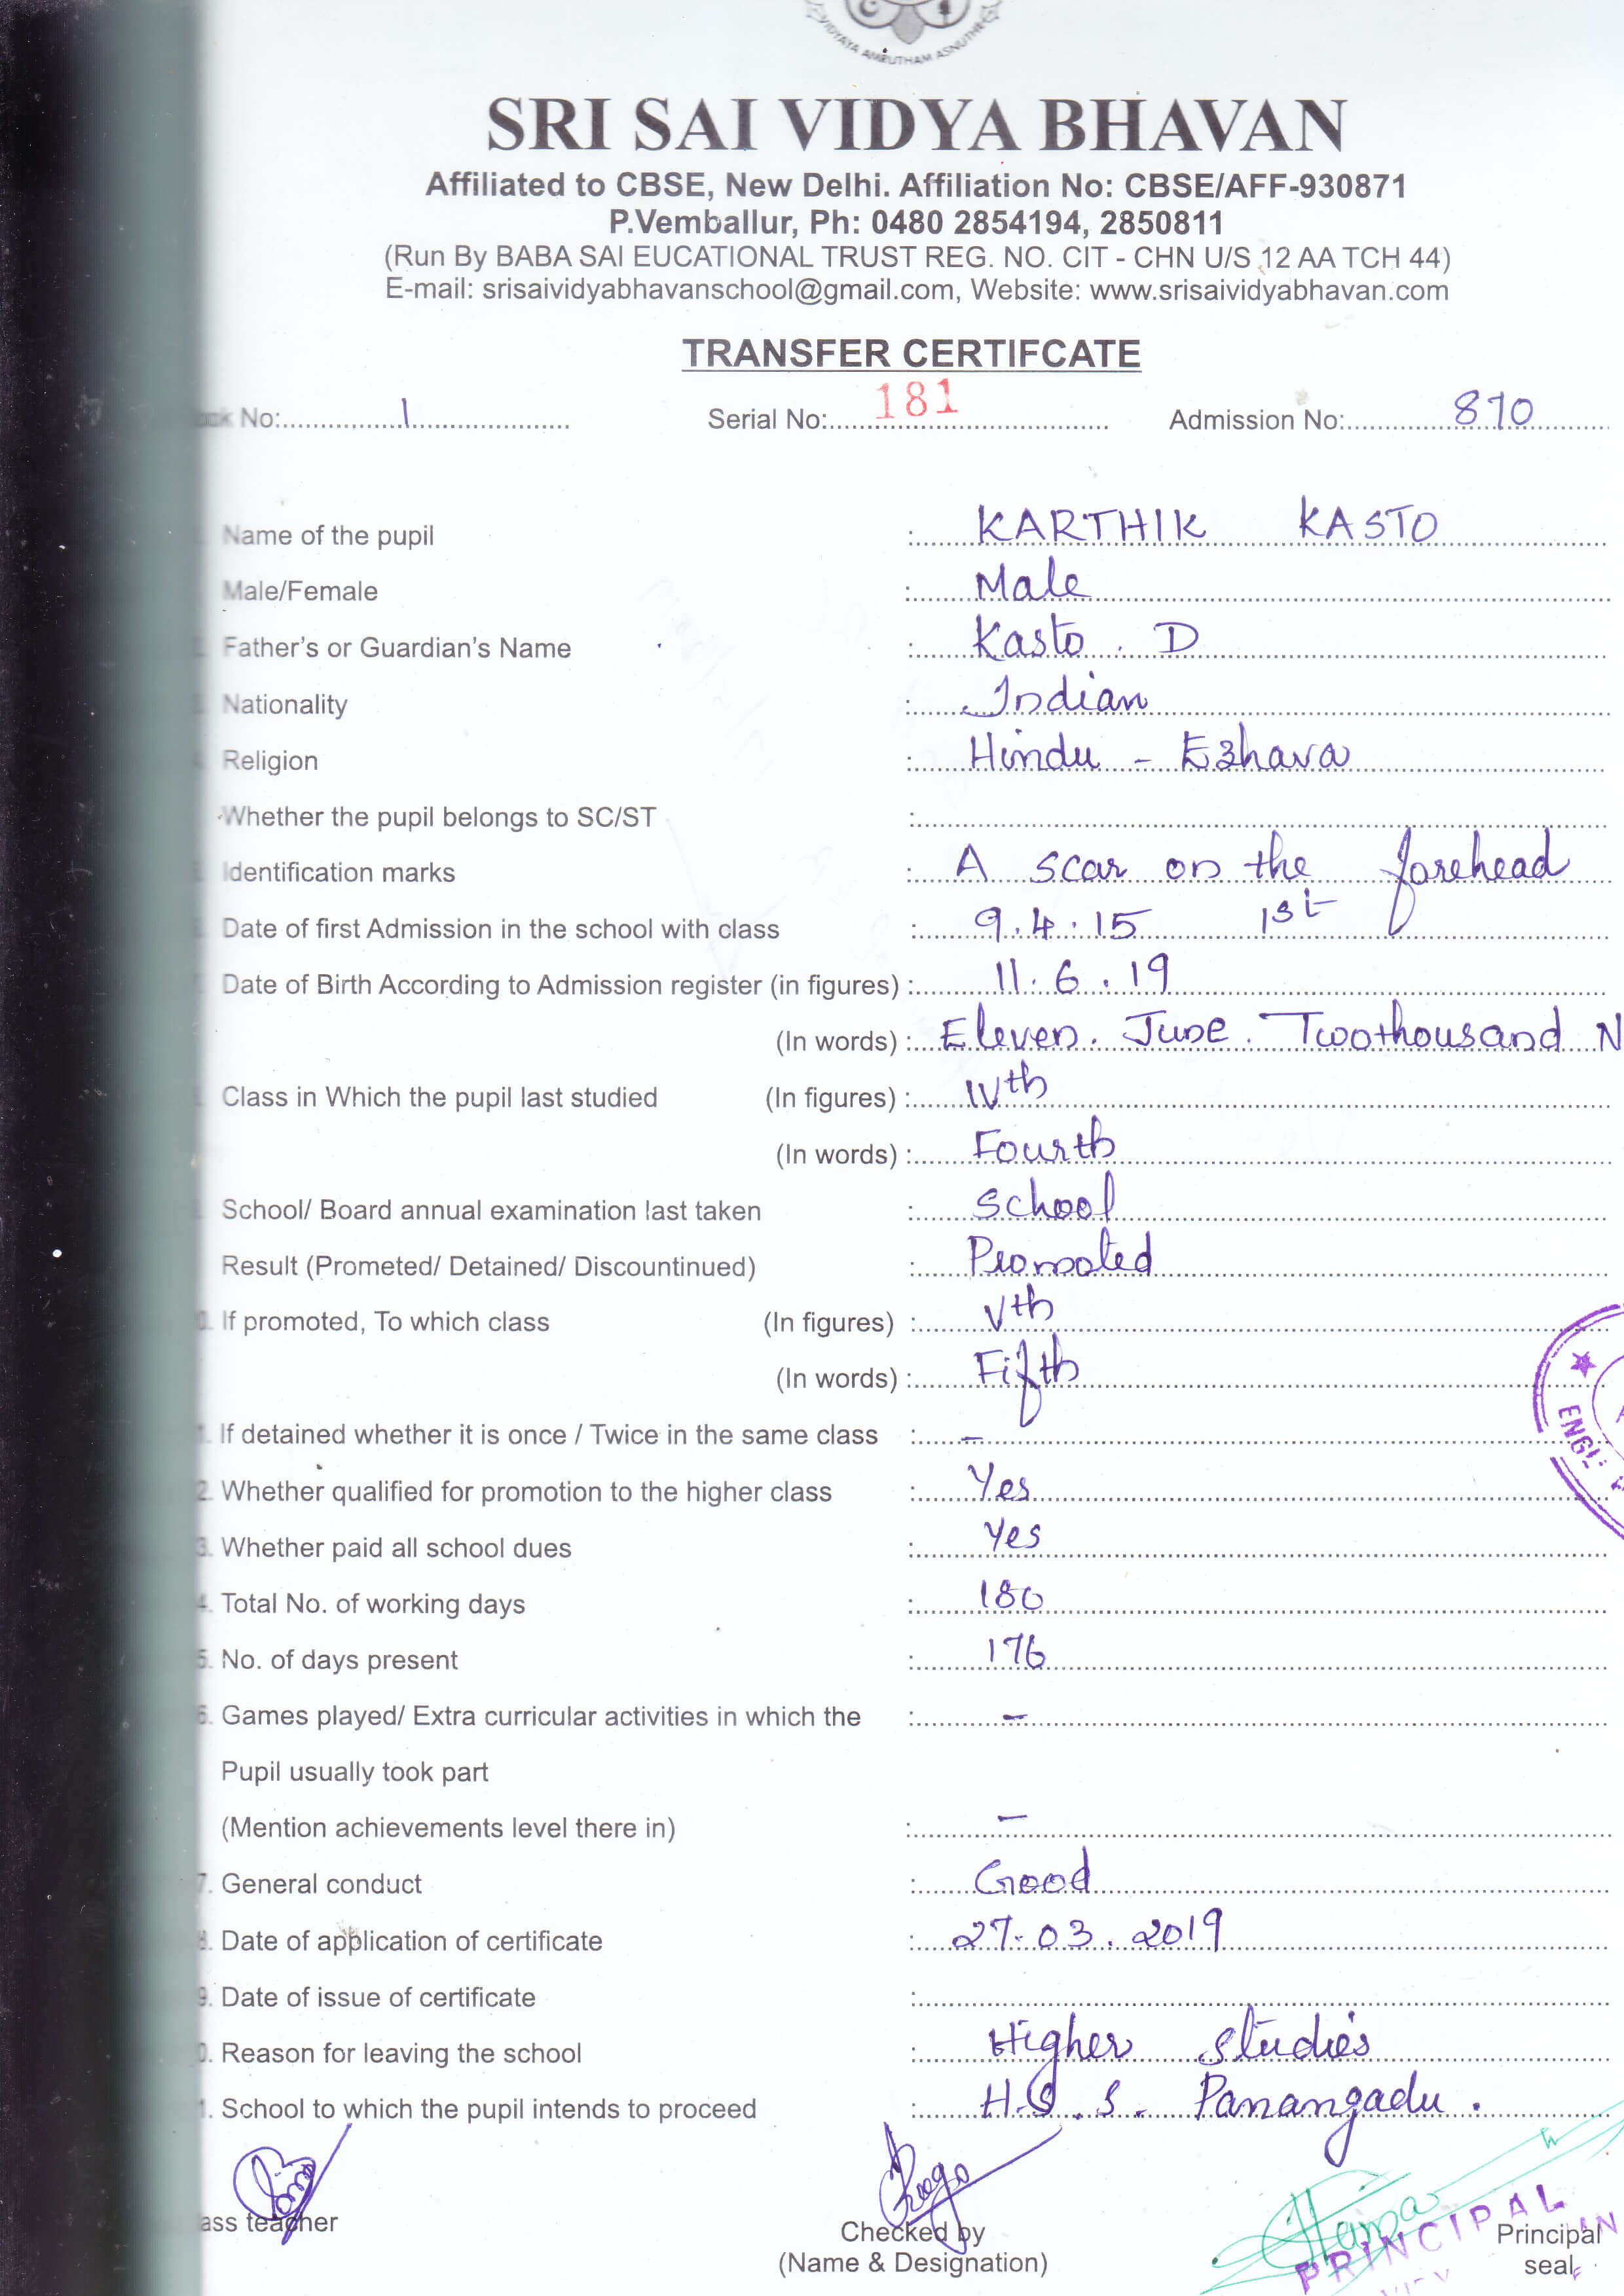 VIDYAYA AMRUTHAM ASNUTHE
SRI SAI VIDYA BHAVAN
Affiliated to CBSE, New Delhi. Affiliation No: CBSE/AFF-930871
P.Vemballur, Ph: 0480 2854194, 2850811
(Run By BABA SAI EUCATIONAL TRUST REG. NO. CIT - CHN U/S 12 AA TCH 44)
E-mail: srisaividyabhavanschool@gmail.com, Website: www.srisaividyabhavan.com
TRANSFER CERTIFCATE
No: 1 Serial No: 181 Admission No: 870
Name of the pupil : KARTHIK KASTO
Male/Female : Male
Father's or Guardian's Name : Kasto . D
Nationality : Indian
Religion : Hindu - Ezhava
Whether the pupil belongs to SC/ST :
Identification marks : A scar on the forehead
Date of first Admission in the school with class : 9.4.15 1st
Date of Birth According to Admission register (in figures) : 11.6.19
(In words) : Eleven. June. Twothousand N
Class in Which the pupil last studied (In figures) : IVth
(In words) : Fourth
School/ Board annual examination last taken : School
Result (Prometed/ Detained/ Discountinued) : Promoted
If promoted, To which class (In figures) : Vth
(In words) : Fifth
1. If detained whether it is once / Twice in the same class : -
2. Whether qualified for promotion to the higher class : Yes
3. Whether paid all school dues : Yes
4. Total No. of working days : 180
5. No. of days present : 176
6. Games played/ Extra curricular activities in which the : -
Pupil usually took part
(Mention achievements level there in) : -
7. General conduct : Good
8. Date of application of certificate : 27.03.2019
9. Date of issue of certificate :
0. Reason for leaving the school : Higher studies
1. School to which the pupil intends to proceed : H.S.S. Panangadu.
ass teacher
Checked by
(Name & Designation)
PRINCIPAL
Principal
seal